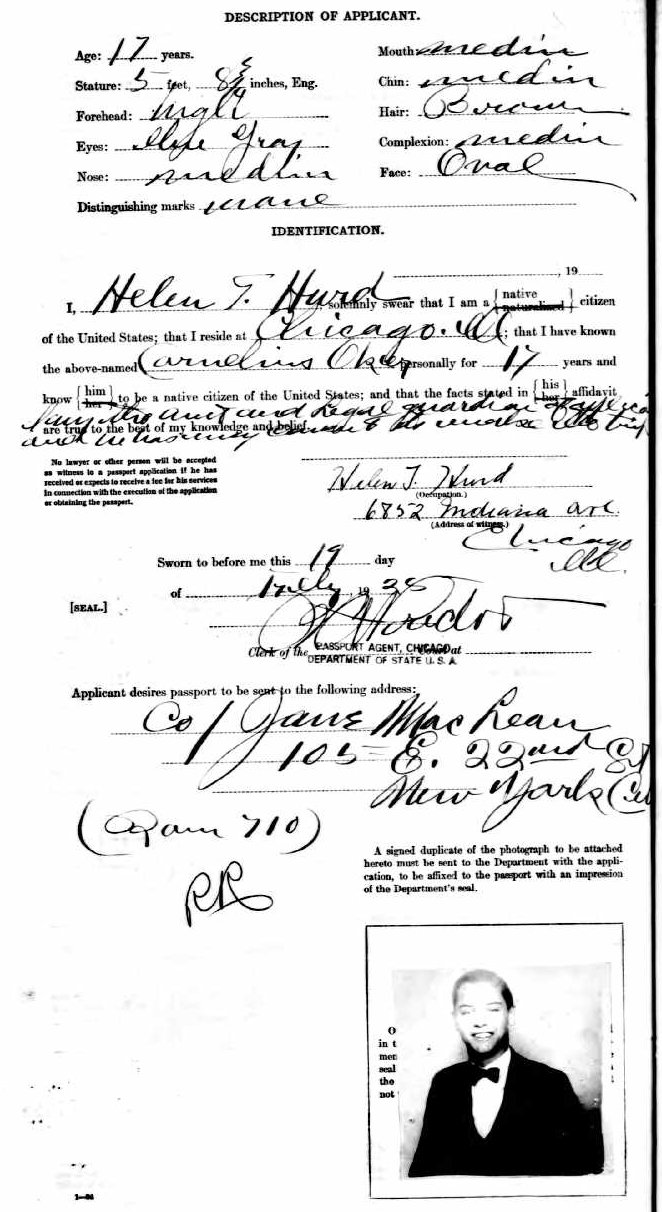 DESCRIPTION OF APPLICANT.
Age: 17 years.
Mouth: medin
Stature: 5 feet, 8 inches, Eng.
Chin: medin
Forehead: high
Hair: Brown
Eyes: Gray
Complexion: medin
Nose: medin
Face: Oval
Distinguishing marks none
IDENTIFICATION.
, 19
I, Helen T. Hurd solemnly swear that I am a { native naturalized } citizen
of the United States; that I reside at Chicago. Ill; that I have known
the above-named Cornelius personally for 17 years and
know { him her } to be a native citizen of the United States; and that the facts stated in { his her } affidavit
and legal guardian
are true to the best of my knowledge and belief.
No lawyer or other person will be accepted
as witness to a passport application if he has
received or expects to receive a fee for his services
in connection with the execution of the application
or obtaining the passport.
Helen T. Hurd
(Occupation.)
6852 Indiana ave.
(Address of witness.)
Chicago
Ill.
Sworn to before me this 19 day
of July 19
[SEAL.]
Clerk of the Court at
PASSPORT AGENT, CHICAGO
DEPARTMENT OF STATE U. S. A.
Applicant desires passport to be sent to the following address:
Co/ Jane MacLean
105 E. 22nd St
New York
(Room 710)
RR
A signed duplicate of the photograph to be attached
hereto must be sent to the Department with the appli-
cation, to be affixed to the passport with an impression
of the Department's seal.
O
in t
men
seal
the
not